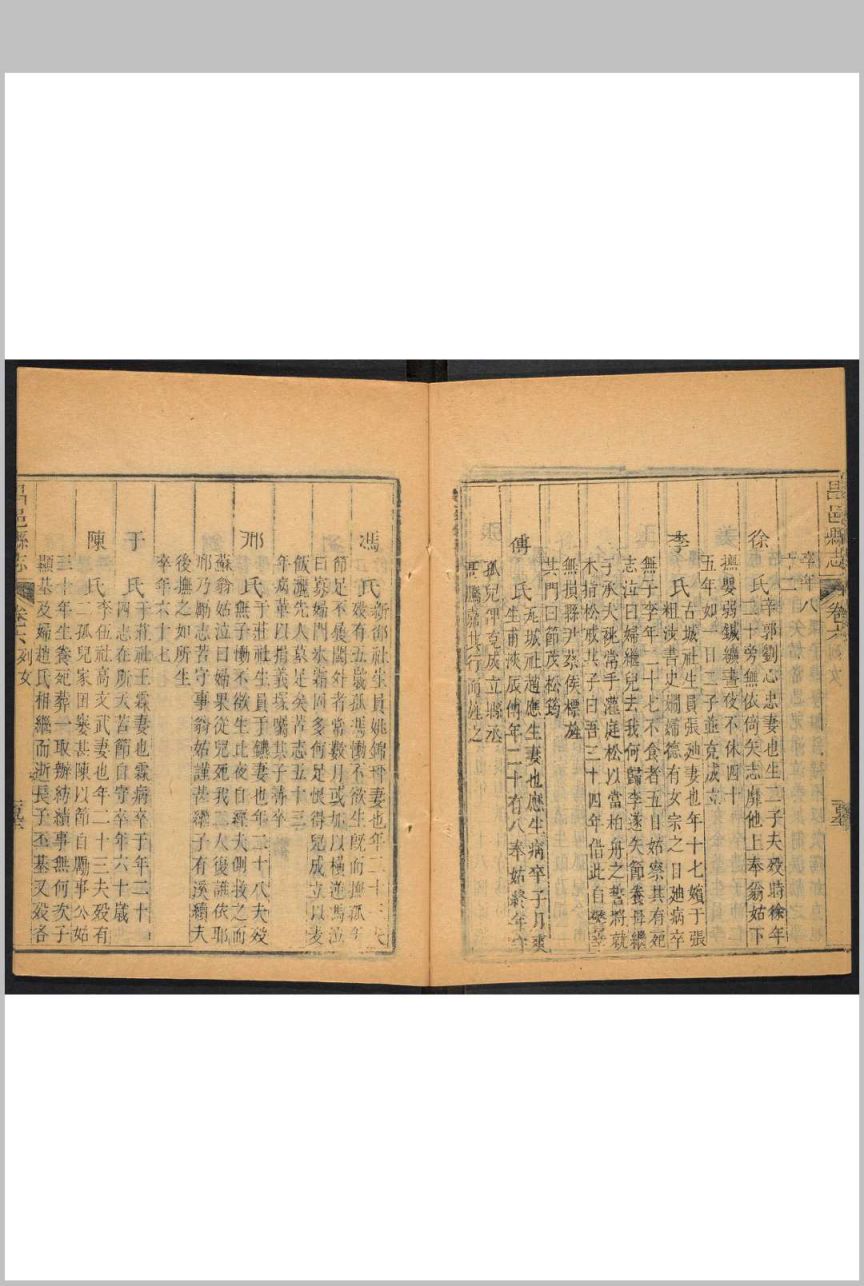 昌邑縣志
卷六
列女
卒年八
十二
徐氏辛郭劉心忠妻也生二子夫歿時徐年
二十旁無依倚矢志靡他上奉翁姑下
撫嬰弱鍼黹晝夜不休四十
五年如一日二子並克成立
李氏古城社生員張廸妻也年十七嬪于張
粗淡書史嫺婦德有女宗之日廸病卒
無子李年二十七不食者五日姑察其有死
志泣曰婦繼兒去我何歸李遂矢節養母繼
子承夫祧常手灌庭松以當柏舟之誓將就
木指松戒其子曰吾三十四年借此自樂幸
無損縣尹蔡侯標旌
其門曰節茂松筠
傅氏瓦城社趙應生妻也應生病卒子月爽
生甫浹辰傅年二十有八奉姑終年守
孤兒俾克成立縣丞
馮鵬嘉其行而旌之
馮氏新郃社生員姚錦妻也年二十三夫
歿有五歲孤馮慟不欲生旣而撫孤守
節足不履閾外者常數月或加以橫逆馮泣
曰寡婦門氷霜固多何足恨得兒成立以麥
飯灑先人墓足矣苦志五十三
年病革以捐義塚囑其子壽卒
邢氏于莊社生員于鑣妻也年二十八夫歿
無子慟不欲生比夜自經夫側救之而
蘇翁姑泣曰婦果從兒死我二人復誰依耶
邢乃勵志苦守事翁姑謹甚繼子有溪續夫
後撫之如所生
卒年六十七
于氏于莊社王霖妻也霖病卒于年二十
四志在所天苦節自守卒年六十歲
陳氏李伍社高文武妻也年二十三夫歿有
二孤兒家囬窶甚陳以節自勵事公姑
三十年生養死葬一取辦紡績事無何次子
顯基及婦趙氏相繼而逝長子丕基又歿各
昌邑縣志
卷六
列女